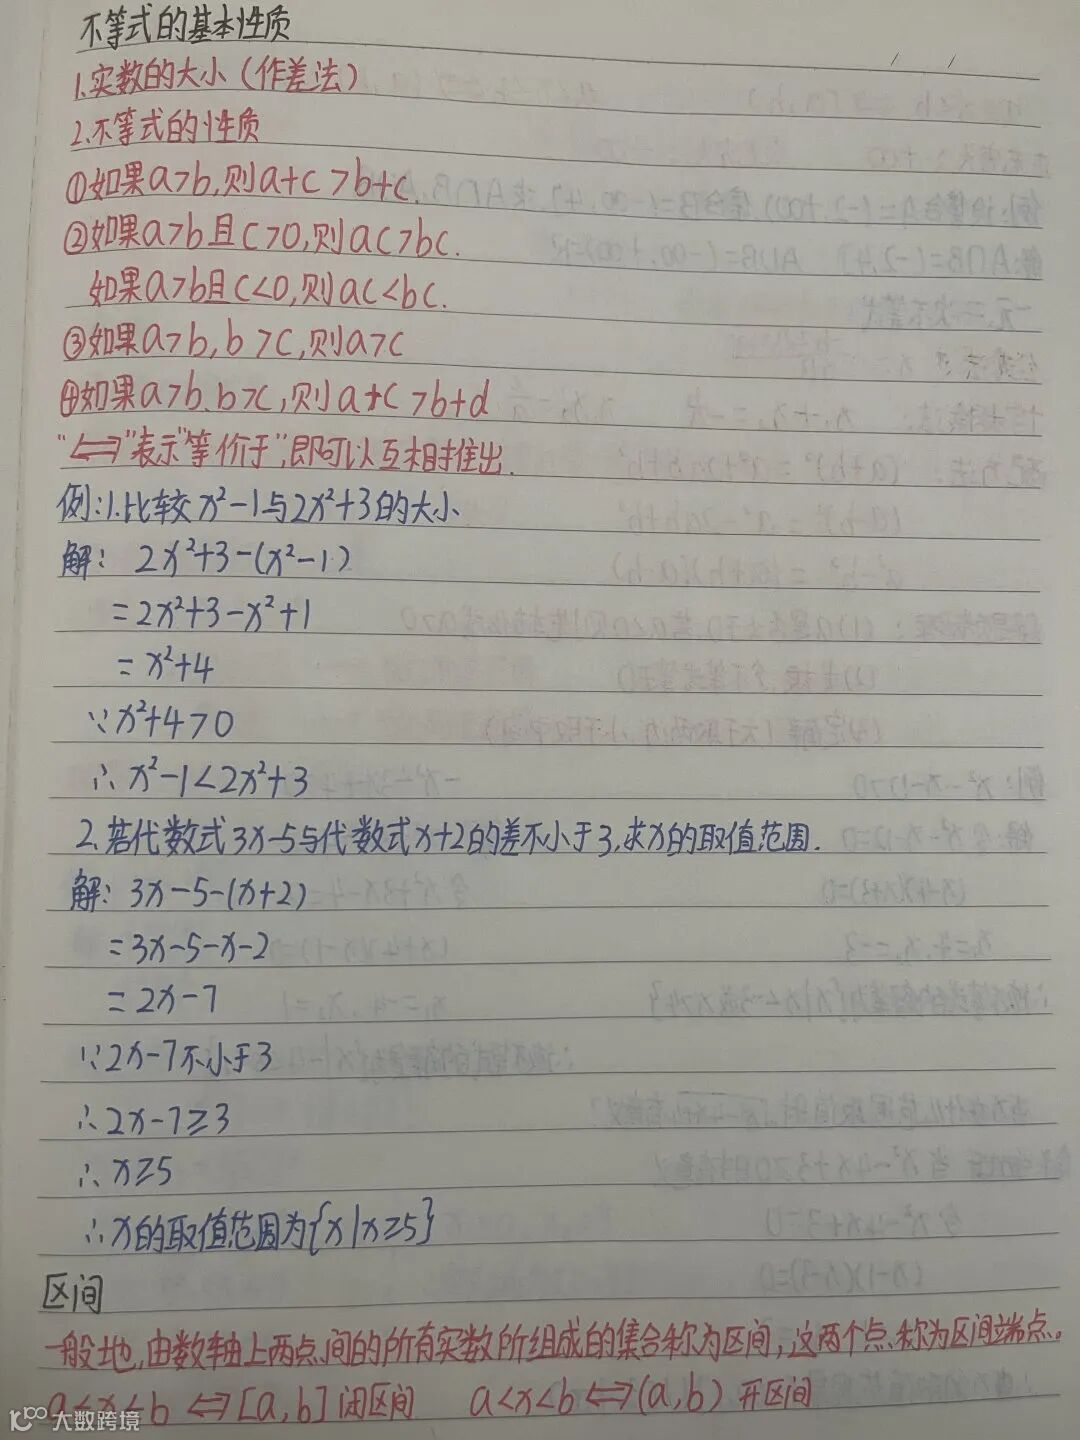 不等式的基本性质
1.实数的大小(作差法)
2.不等式的性质
①如果a>b,则a+c>b+c.
②如果a>b且c>0,则ac>bc.
如果a>b且c<0,则ac<bc.
③如果a>b,b>c,则a>c
④如果a>b,b>c,则a+c>b+d
"⟺"表示"等价于",即可以互相推出.
例:1.比较x²-1与2x²+3的大小
解: 2x²+3-(x²-1)
=2x²+3-x²+1
=x²+4
∵x²+4>0
∴x²-1<2x²+3
2.若代数式3x-5与代数式x+2的差不小于3,求x的取值范围.
解: 3x-5-(x+2)
=3x-5-x-2
=2x-7
∵2x-7不小于3
∴2x-7≥3
∴x≥5
∴x的取值范围为{x|x≥5}
区间
一般地,由数轴上两点间的所有实数所组成的集合称为区间,这两个点称为区间端点。
a≤x≤b⟺[a,b]闭区间 a<x<b⟺(a,b)开区间
大数跨境